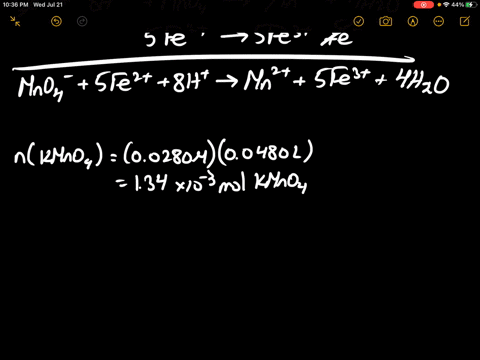 10:36 PM Wed Jul 21
44%
5Fe → 5Fe³⁺
MnO₄⁻ + 5Fe²⁺ + 8H⁺ → Mn²⁺ + 5Fe³⁺ + 4H₂O
n(KMnO₄) = (0.0280M)(0.0480L)
= 1.34 × 10⁻³ mol KMnO₄